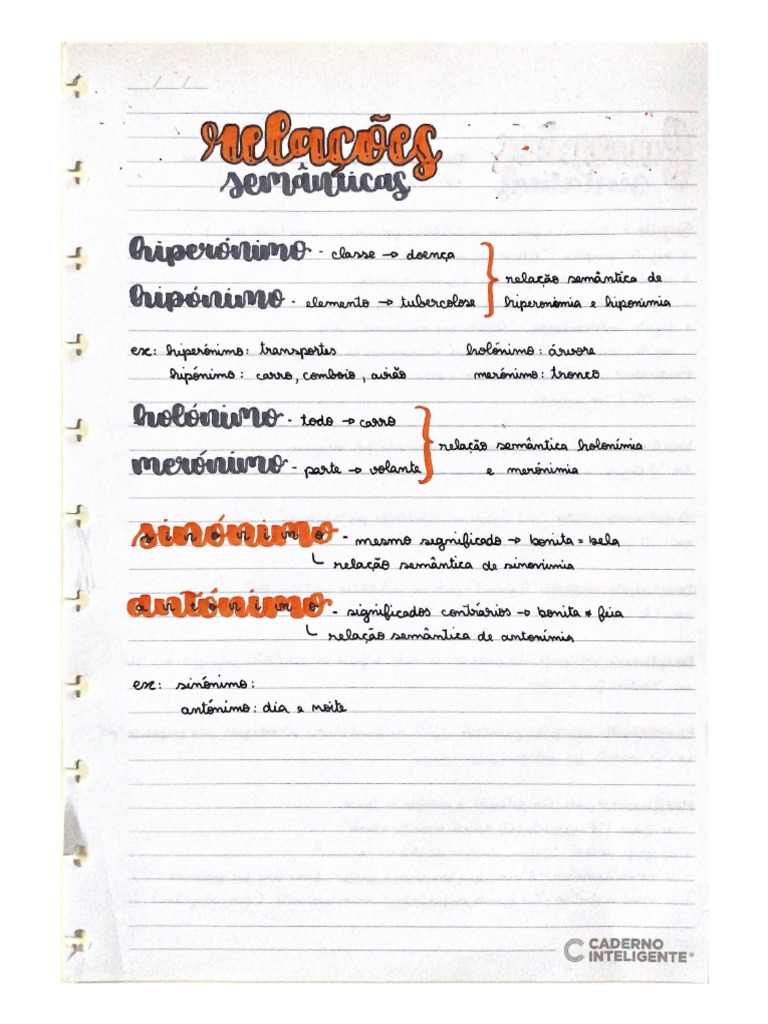 __/__/__
relações
semânticas
hiperónimo - classe → doença
hipónimo - elemento → tubercolose
relação semântica de
hiperonomia e hiponimia
ex: hiperónimo: transportes
hipónimo: carro, comboio, avião
holónimo: árvore
merónimo: tronco
holónimo - todo → carro
merónimo - parte → volante
relação semântica holonímia
e merónimia
sinónimo - mesmo significado → bonita = bela
relação semântica de sinonimia
antónimo - significados contrários → bonita ≠ feia
relação semântica de antonímia
ex: sinónimo:
antónimo: dia e noite
CADERNO
INTELIGENTE®